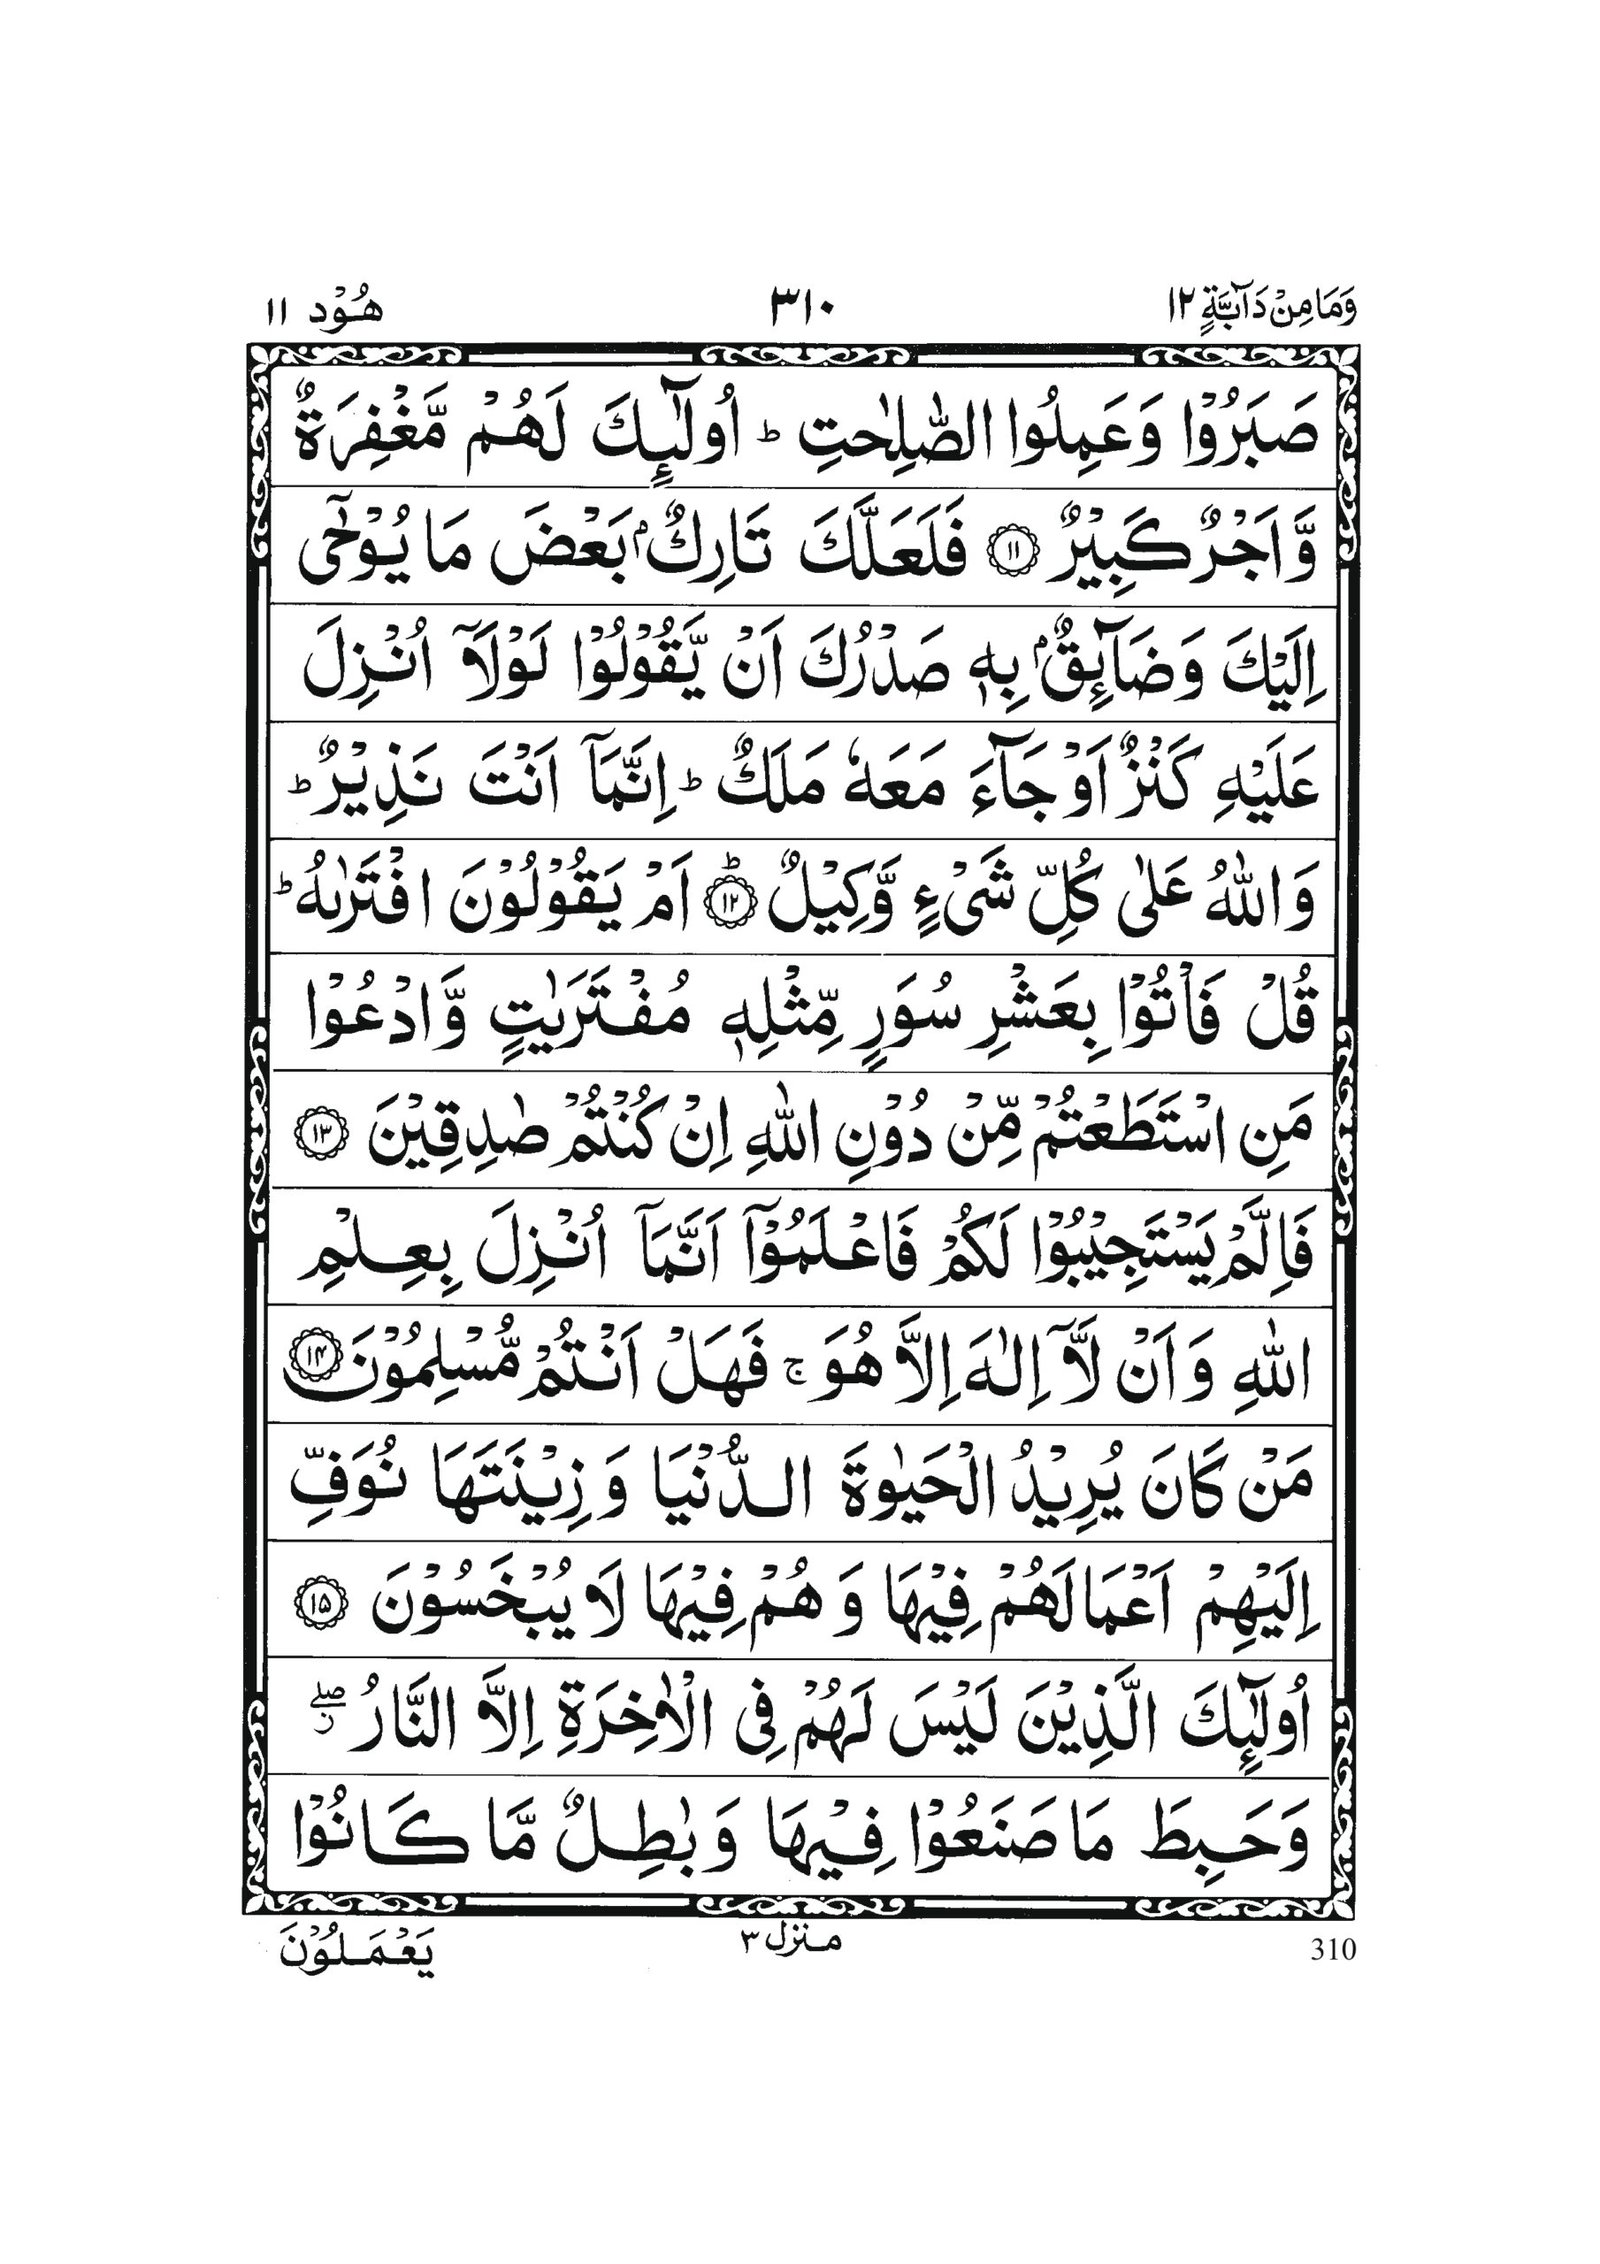 وَمَا مِنْ دَآبَّةٍ ١٢ ٣١٠ هُوْد ١١
صَبَرُوْا وَعَمِلُوا الصّٰلِحٰتِ ؕ اُولٰٓئِكَ لَهُمْ مَّغْفِرَةٌ
وَّاَجْرٌ كَبِيْرٌ ۝١١ فَلَعَلَّكَ تَارِكٌۢ بَعْضَ مَا يُوْحٰٓى
اِلَيْكَ وَضَآئِقٌۢ بِهٖ صَدْرُكَ اَنْ يَّقُوْلُوْا لَوْلَاۤ اُنْزِلَ
عَلَيْهِ كَنْزٌ اَوْ جَآءَ مَعَهٗ مَلَكٌ ؕ اِنَّمَاۤ اَنْتَ نَذِيْرٌ ؕ
وَاللّٰهُ عَلٰى كُلِّ شَىْءٍ وَّكِيْلٌ ۝١٢ؕ اَمْ يَقُوْلُوْنَ افْتَرٰىهُ ؕ
قُلْ فَاْتُوْا بِعَشْرِ سُوَرٍ مِّثْلِهٖ مُفْتَرَيٰتٍ وَّادْعُوْا
مَنِ اسْتَطَعْتُمْ مِّنْ دُوْنِ اللّٰهِ اِنْ كُنْتُمْ صٰدِقِيْنَ ۝١٣
فَاِلَّمْ يَسْتَجِيْبُوْا لَكُمْ فَاعْلَمُوْۤا اَنَّمَاۤ اُنْزِلَ بِعِلْمِ
اللّٰهِ وَاَنْ لَّاۤ اِلٰهَ اِلَّا هُوَ ۚ فَهَلْ اَنْتُمْ مُّسْلِمُوْنَ ۝١٤
مَنْ كَانَ يُرِيْدُ الْحَيٰوةَ الدُّنْيَا وَزِيْنَتَهَا نُوَفِّ
اِلَيْهِمْ اَعْمَالَهُمْ فِيْهَا وَهُمْ فِيْهَا لَا يُبْخَسُوْنَ ۝١٥
اُولٰٓئِكَ الَّذِيْنَ لَيْسَ لَهُمْ فِى الْاٰخِرَةِ اِلَّا النَّارُ ۖز
وَحَبِطَ مَا صَنَعُوْا فِيْهَا وَبٰطِلٌ مَّا كَانُوْا
يَعْمَلُوْنَ منزل ٣ 310